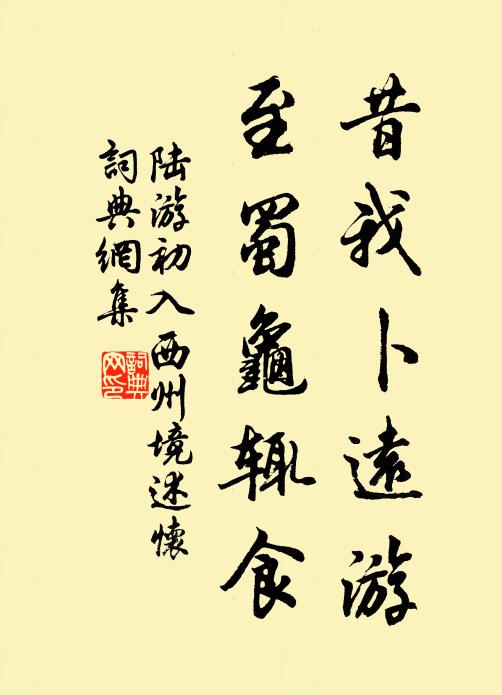 昔我卜遠游
至蜀龜辄食
陆游初入西州境述懷
詞典網集
詞典
网印